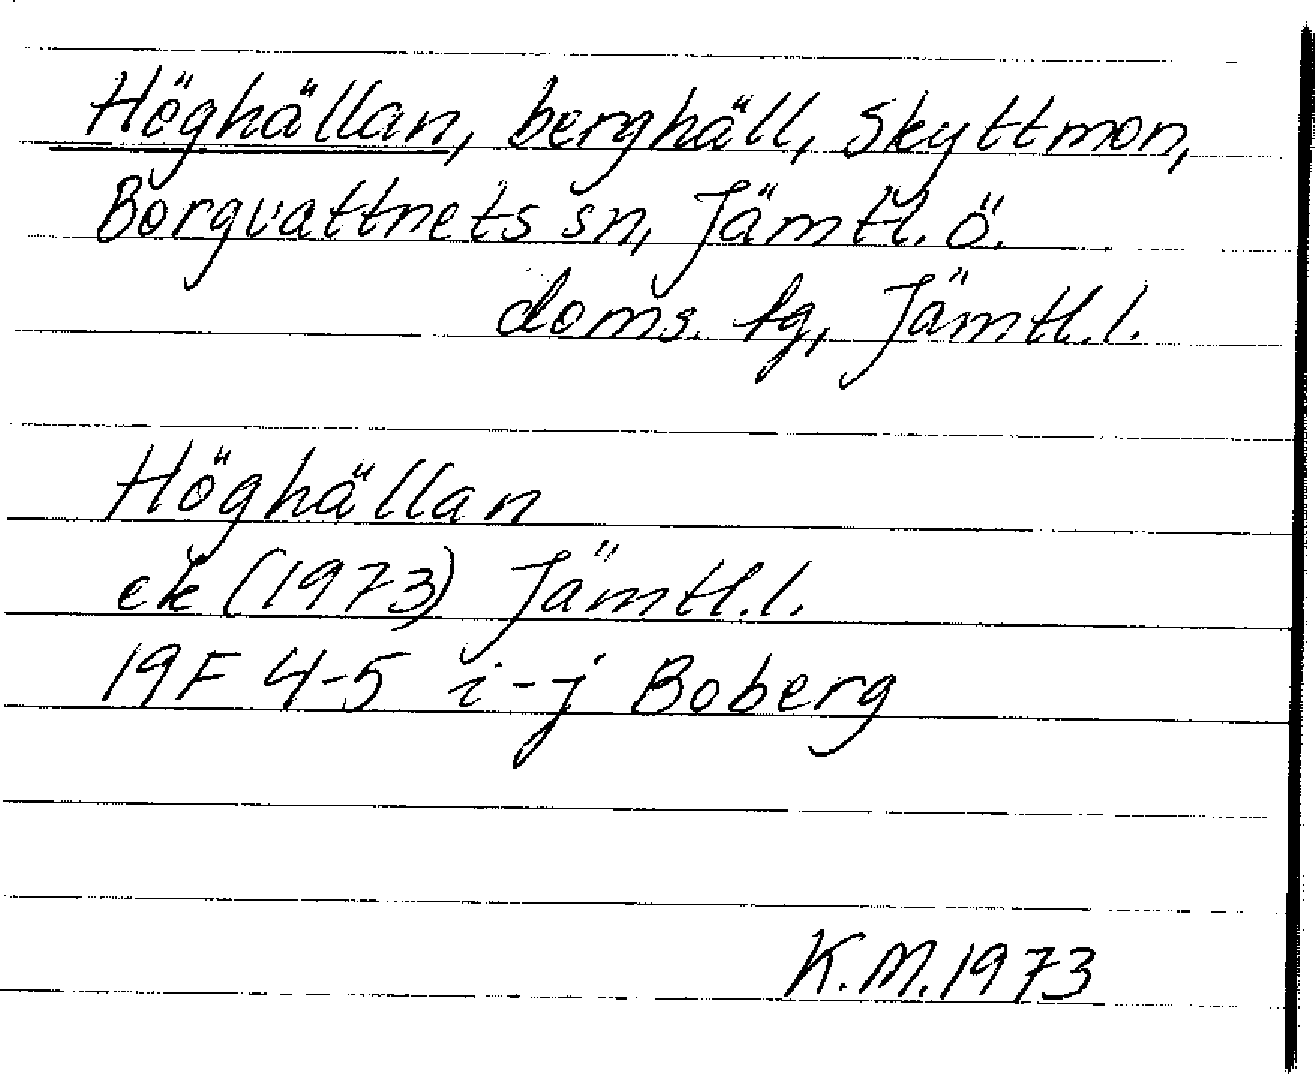 Höghällan, berghäll, Skyttmon,
Borgvattnets sn, Jämtl. ö.
doms. tg, Jämtl. l.
Höghällan
ek (1973) Jämtl. l.
19F 4-5 i-j Boberg
K.M. 1973